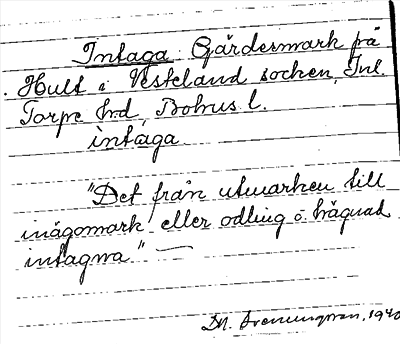 Intaga. Gärdesmark på
Hult i Västerland socken, Inl.
Torpe hd, Bohus l.
intaga
"Det från utmarken till
inägomark eller odling o. hägnad
intagna"
DN.